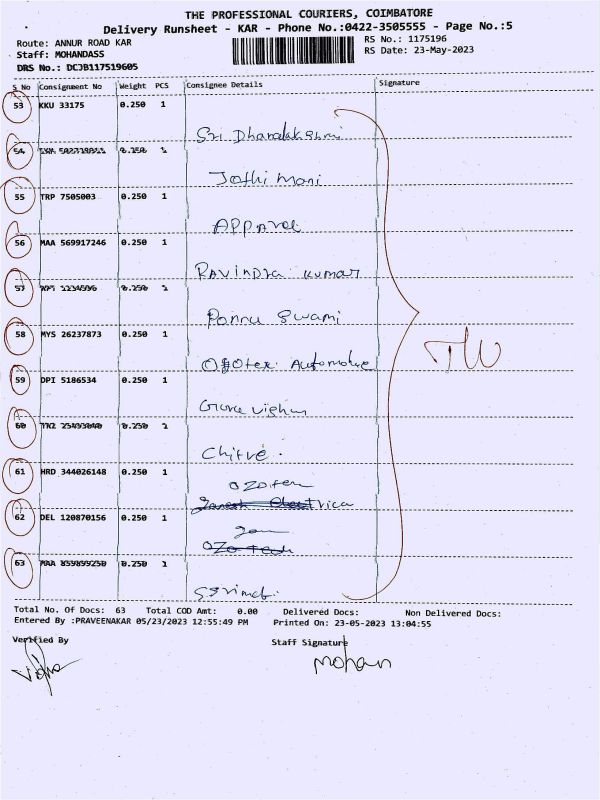 THE PROFESSIONAL COURIERS, COIMBATORE
Delivery Runsheet - KAR - Phone No.:0422-3505555 - Page No.:5
Route: ANNUR ROAD KAR
RS No.: 1175196
Staff: MOHANDASS
RS Date: 23-May-2023
DRS No.: DCJB117519605
S No Consignment No Weight PCS Consignee Details Signature
53 KKU 33175 0.250 1
Sri Dhanalakshmi
54 0.250 1
Jothi mani
55 TRP 7505003 0.250 1
APPArel
56 MAA 569917246 0.250 1
RAVINDRA KUMAR
57 0.250 1
Ponnu Swami
58 MYS 26237873 0.250 1
TW
Automotive
59 DPI 5186534 0.250 1
60 0.250 1
Chitra.
61 HRD 344026148 0.250 1
OZOten
62 DEL 120870156 0.250 1
63 MAA 859899250 0.250 1
Total No. Of Docs: 63 Total COD Amt: 0.00 Delivered Docs: Non Delivered Docs:
Entered By :PRAVEENAKAR 05/23/2023 12:55:49 PM Printed On: 23-05-2023 13:04:55
Verified By Staff Signature
Mohan